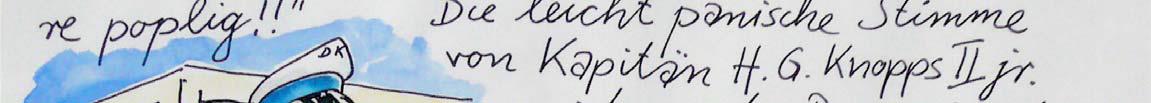 re poplig!!"
DK
Die leicht panische Stimme
von Kapitän H. G. Knopps II jr.